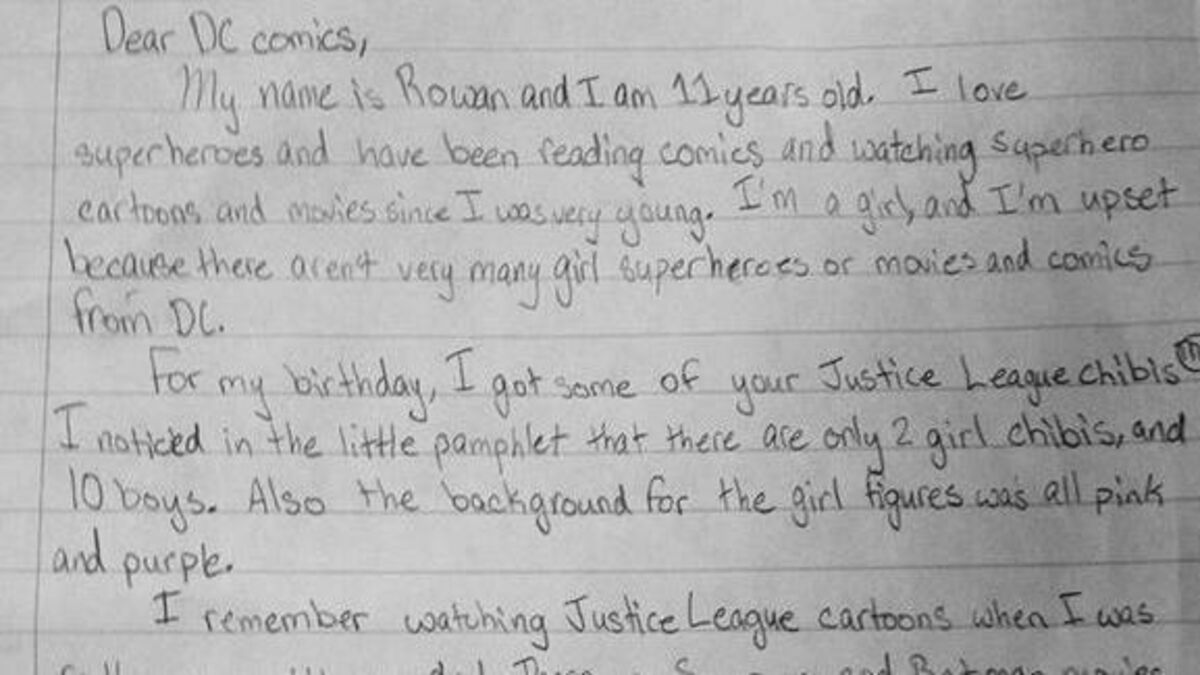 Dear DC comics,
My name is Rowan and I am 11 years old. I love
superheroes and have been reading comics and watching superhero
cartoons and movies since I was very young. I'm a girl, and I'm upset
because there aren't very many girl superheroes or movies and comics
from DC.
For my birthday, I got some of your Justice League chibis
I noticed in the little pamphlet that there are only 2 girl chibis, and
10 boys. Also the background for the girl figures was all pink
and purple.
I remember watching Justice League cartoons when I was
and Batman movies